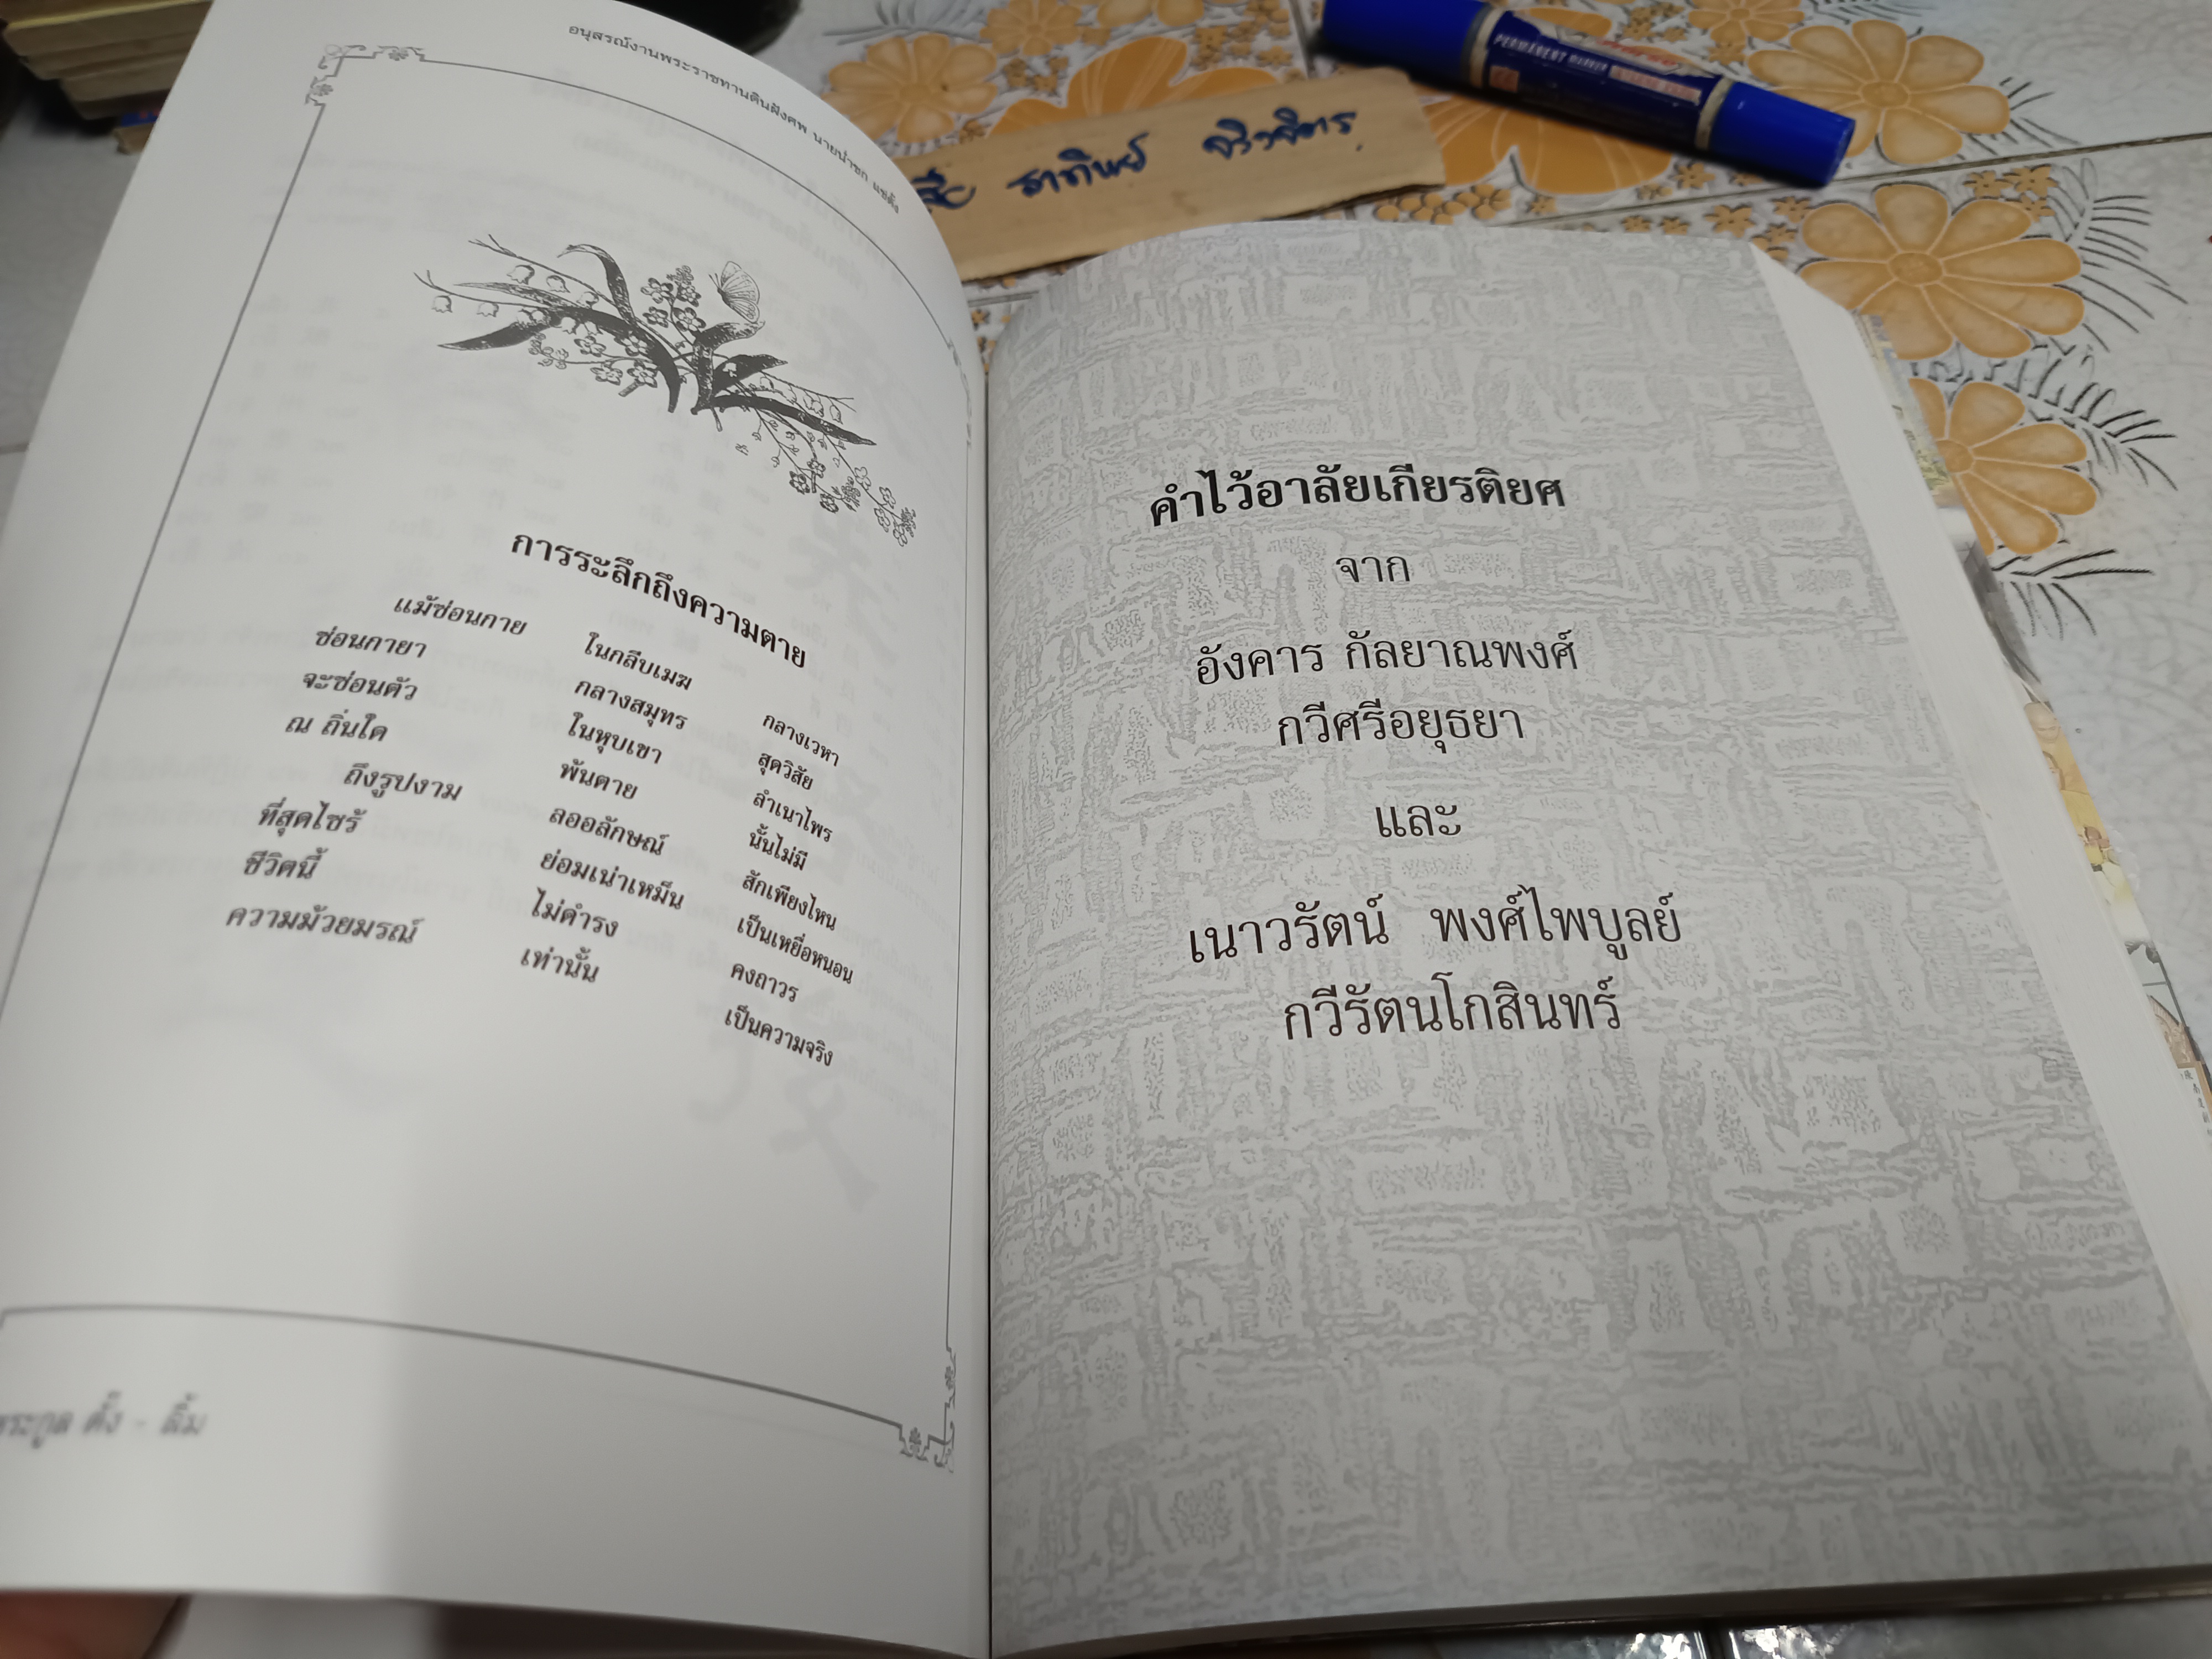 อนุสรณ์งานพระราชทานดินฝังศพ นายนำชก แซ่ตั้ง
การระลึกถึงความตาย
แม้ซ่อนกาย ในกลีบเมฆ กลางเวหา
ซ่อนกายา กลางสมุทร สุดวิสัย
จะซ่อนตัว ในหุบเขา ลำเนาไพร
ณ ถิ่นใด พ้นตาย นั้นไม่มี
ถึงรูปงาม ลออลักษณ์ สักเพียงไหน
ที่สุดไซร้ ย่อมเน่าเหม็น เป็นเหยื่อหนอน
ชีวิตนี้ ไม่ดำรง คงถาวร
ความม้วยมรณ์ เท่านั้น เป็นความจริง
ตั้ง - ลิ้ม
คำไว้อาลัยเกียรติยศ
จาก
อังคาร กัลยาณพงศ์
กวีศรีอยุธยา
และ
เนาวรัตน์ พงศ์ไพบูลย์
กวีรัตนโกสินทร์
PERMANENT MARKER